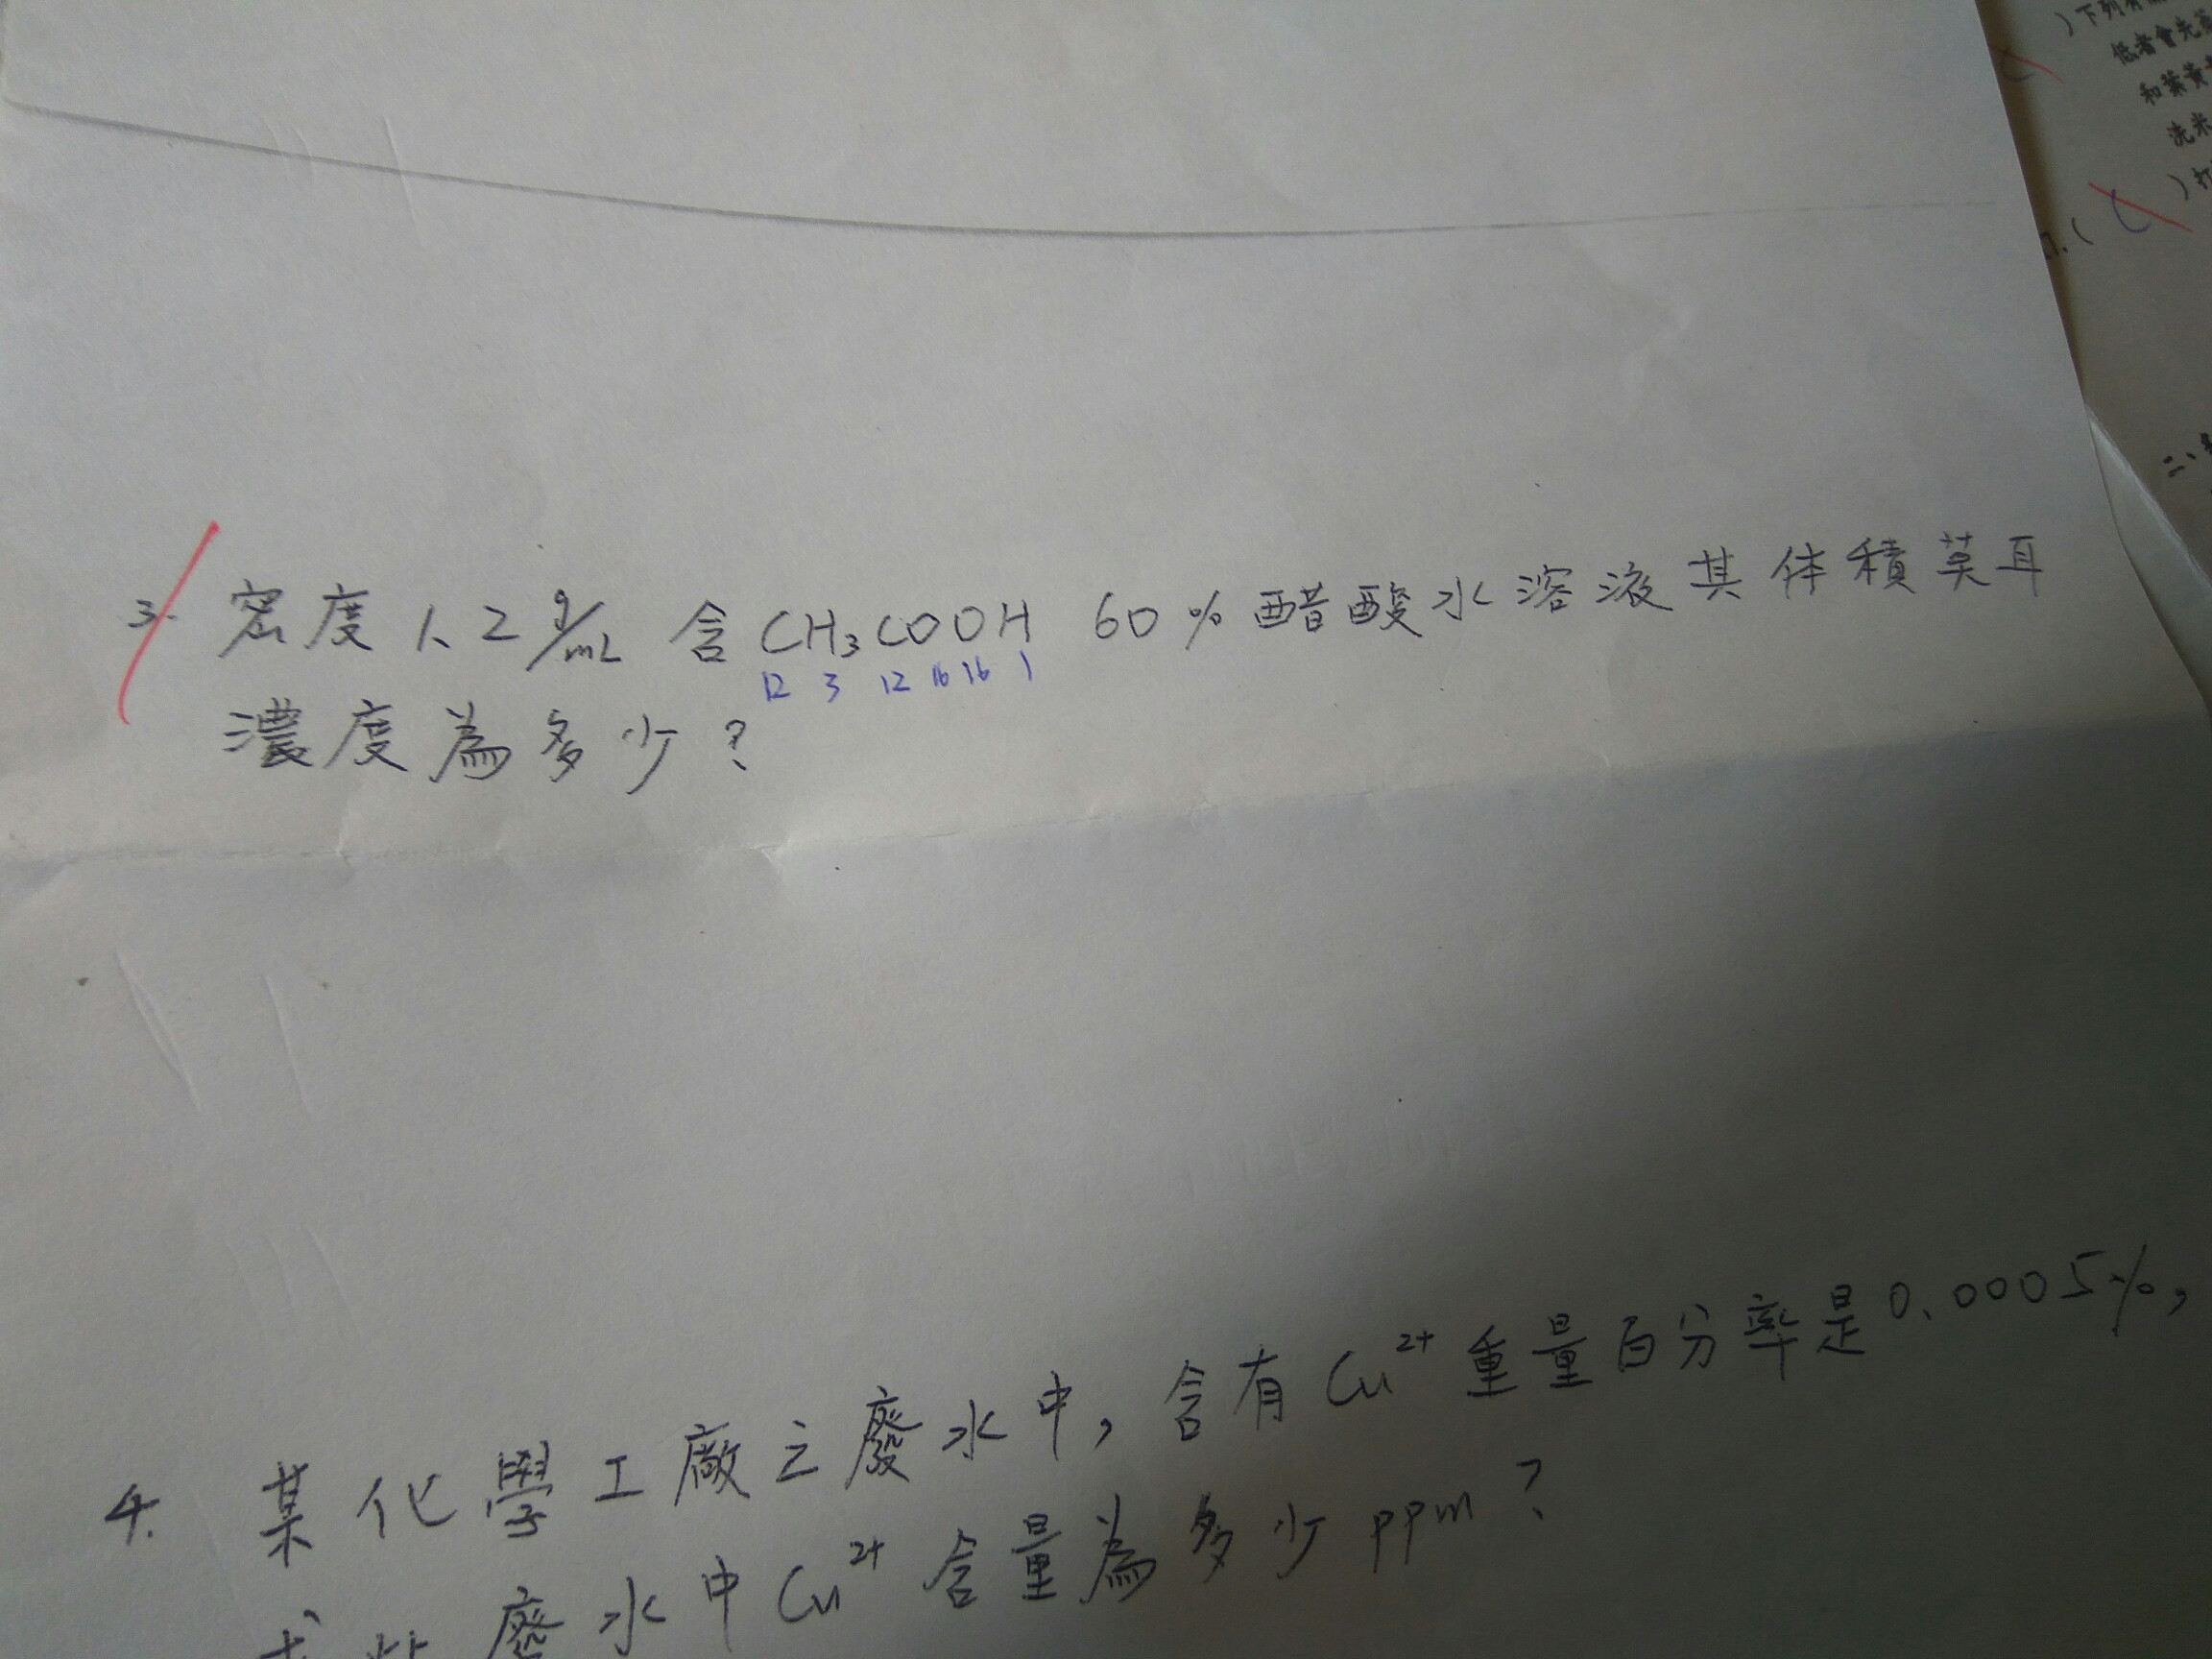 )下列有
低者會先
和葉黃
洗米
)
7.(
二、
3. 密度 1.2 g/mL 含 CH₃COOH 60% 醋酸水溶液其体積莫耳
12 3 12 16 16 1
濃度為多少?
4. 某化學工廠之廢水中,含有 Cu²⁺ 重量百分率是 0.0005%,
求此廢水中 Cu²⁺ 含量為多少 ppm?